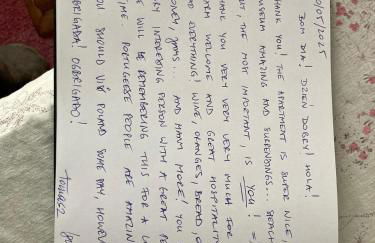 0/05/2025
BOM DIA! DZIEŃ DOBRY! HOLA!
HANK YOU! THE APARTMENT IS SUPER NICE
AMAZING AND BEACH
THE MOST IMPORTANT, IS YOU!
THANK YOU VERY VERY VERY MUCH FOR
WELCOME AND GREAT HOSPITALITY
EVERYTHING! WINE, ORANGES, BREAD,
HONEY, JAMS... AND MANY MORE! YOU
INTERESTING PERSON WITH A GREAT
WILL BE REMEMBERING THIS FOR A
PORTUGUESE PEOPLE ARE AMAZIN
YOU SHOULD VISIT POLAND SOME DAY, HOWEV
OBRIGADA! OBRIGADO!
TOMASZ